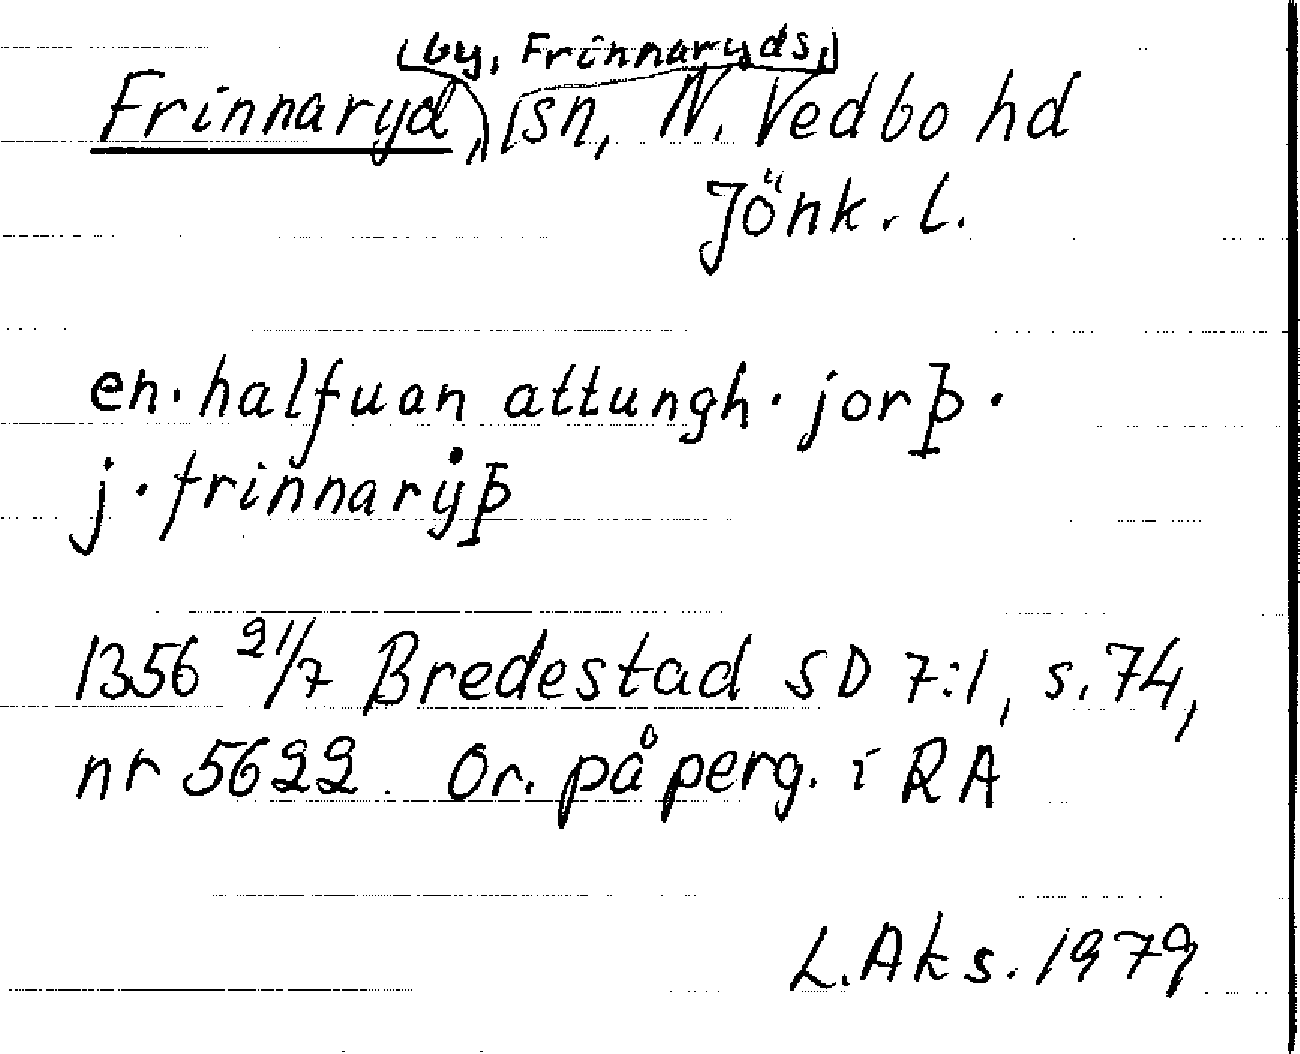 (by, Frinnaryds)
Frinnaryd, sn, N. Vedbo hd
Jönk. l.
en · halfuan attungh · jorþ ·
j · frinnarẏþ
1356 21/7 Bredestad SD 7:1, s. 74,
nr 5622. Or. på perg. i RA
L. Aks. 1979